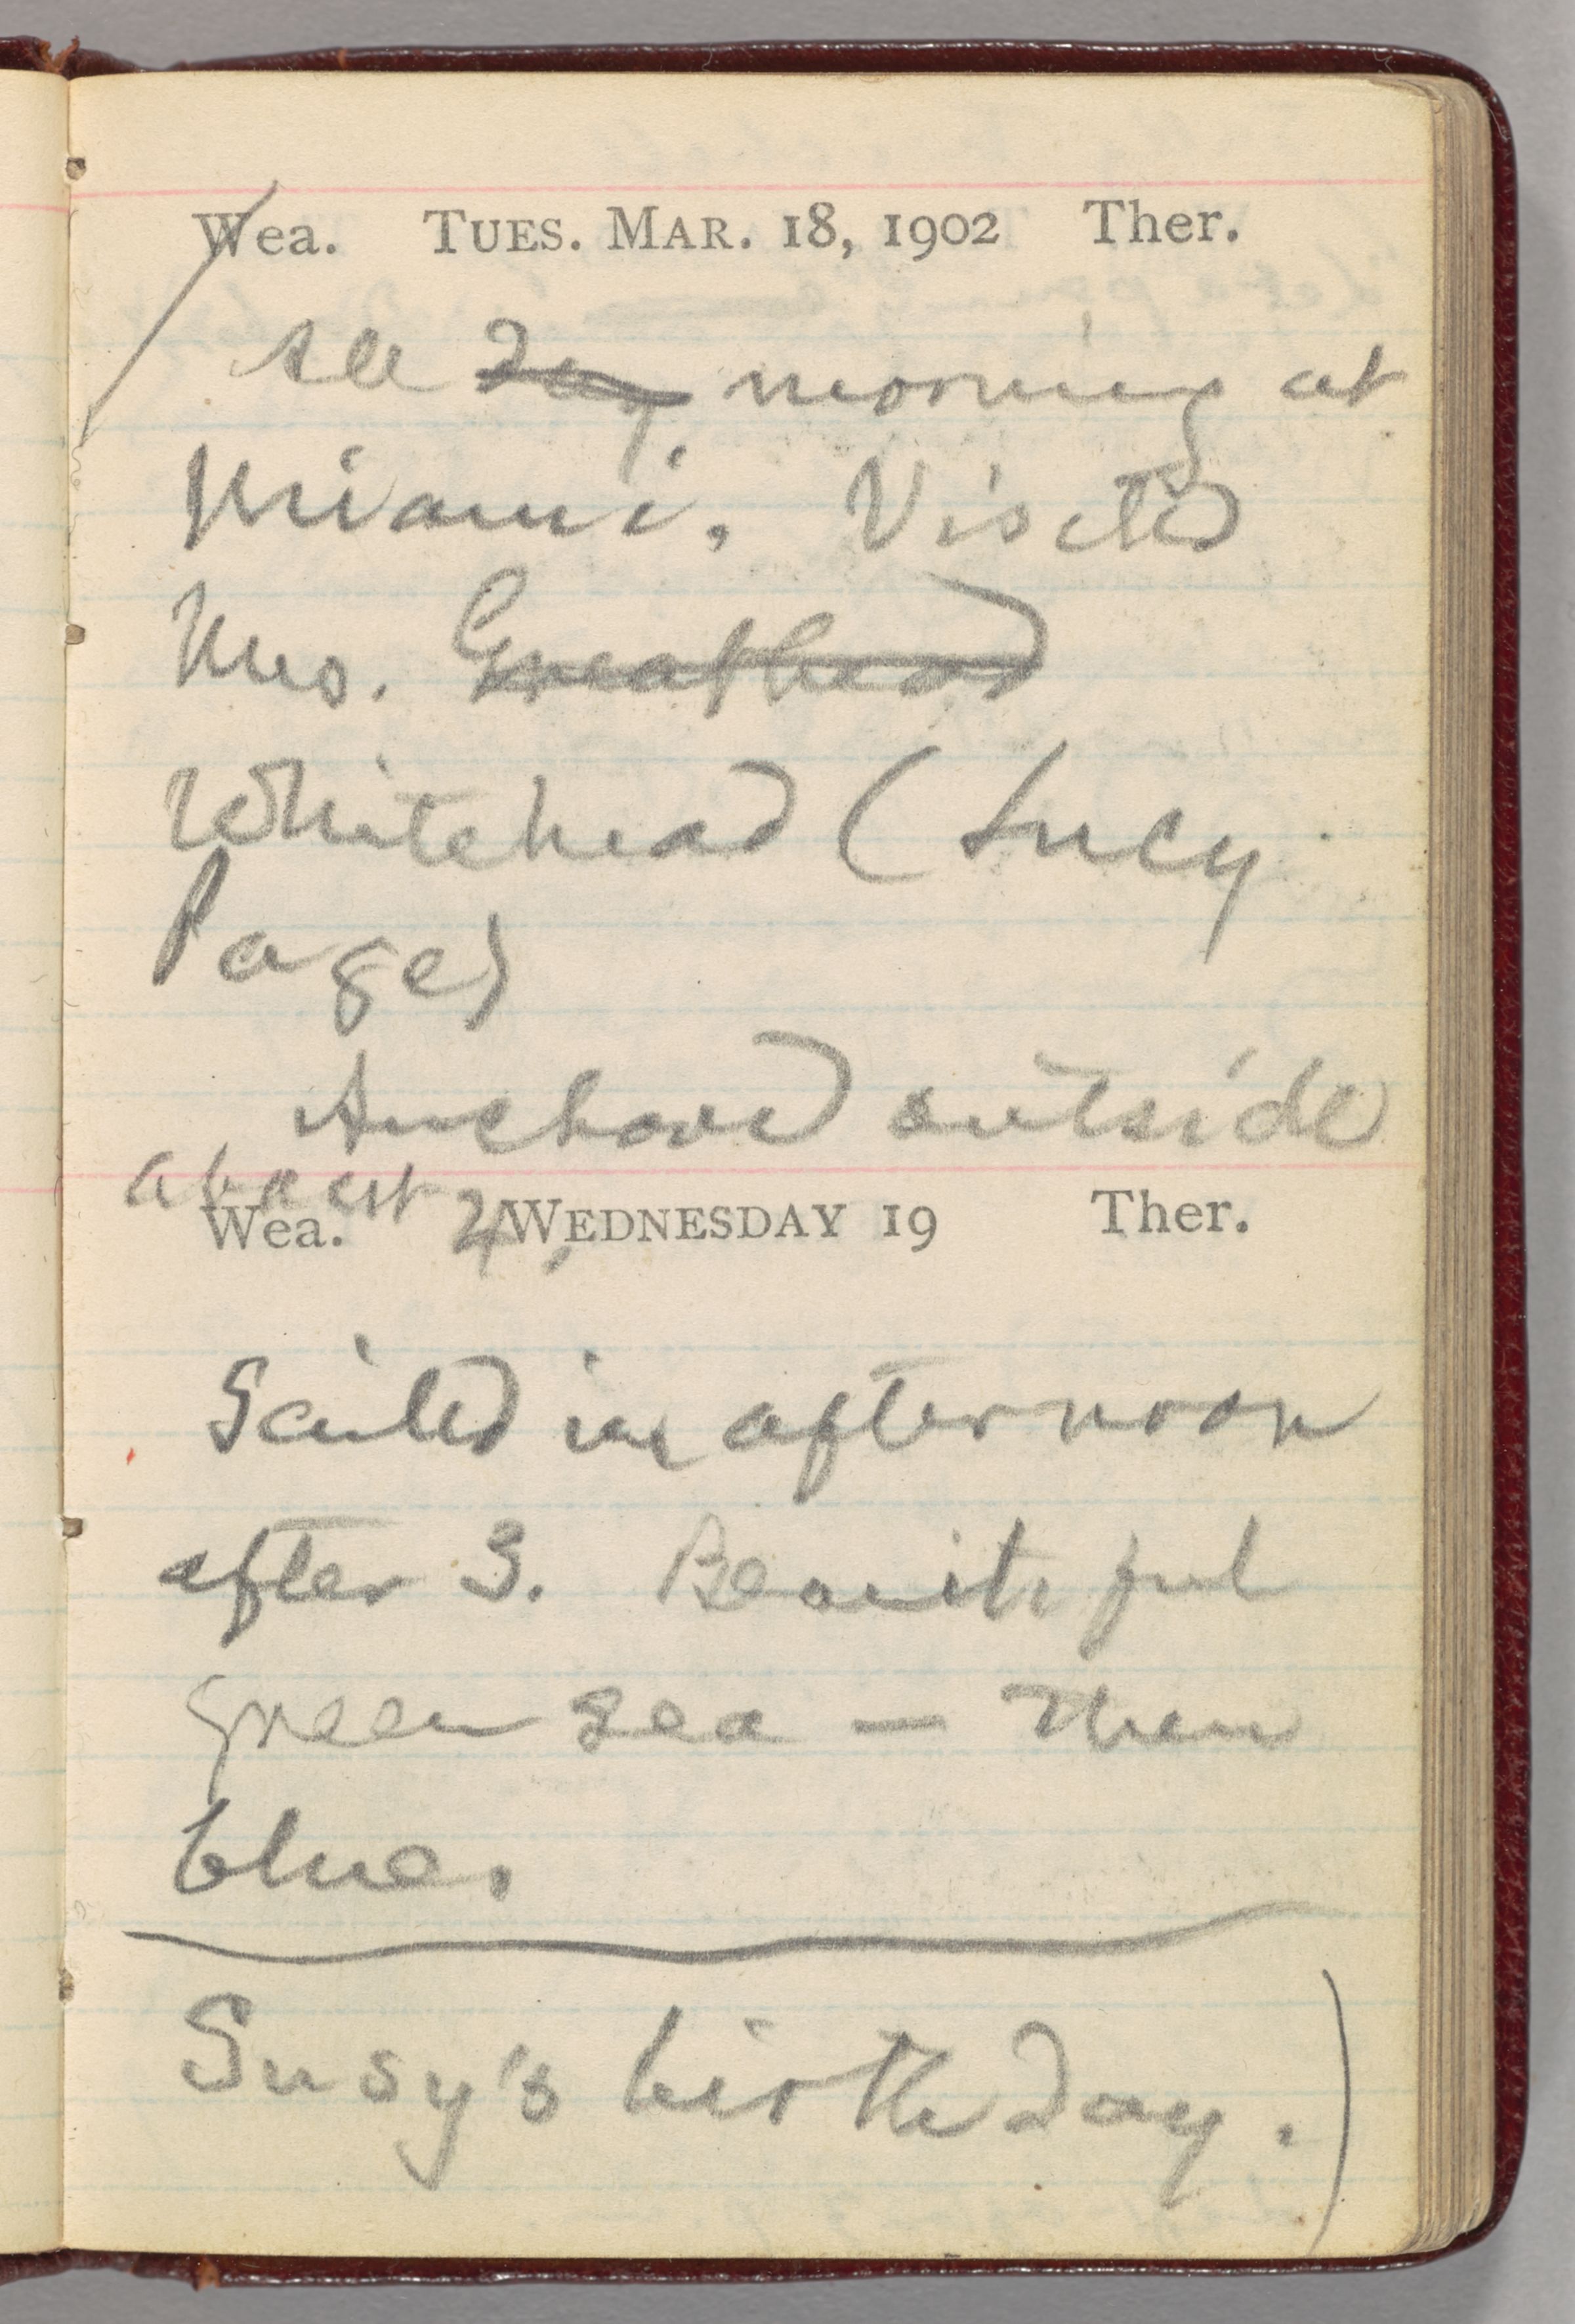 Wea. TUES. MAR. 18, 1902 Ther.
All day morning at
Miami. Visited
Mrs. Greathead
Whitehead (Lucy
Page)
Anchored outside
about 4.
Wea. WEDNESDAY 19 Ther.
Sailed in afternoon
after 3. Beautiful
green sea — then
blue.
Susy's birthday.)